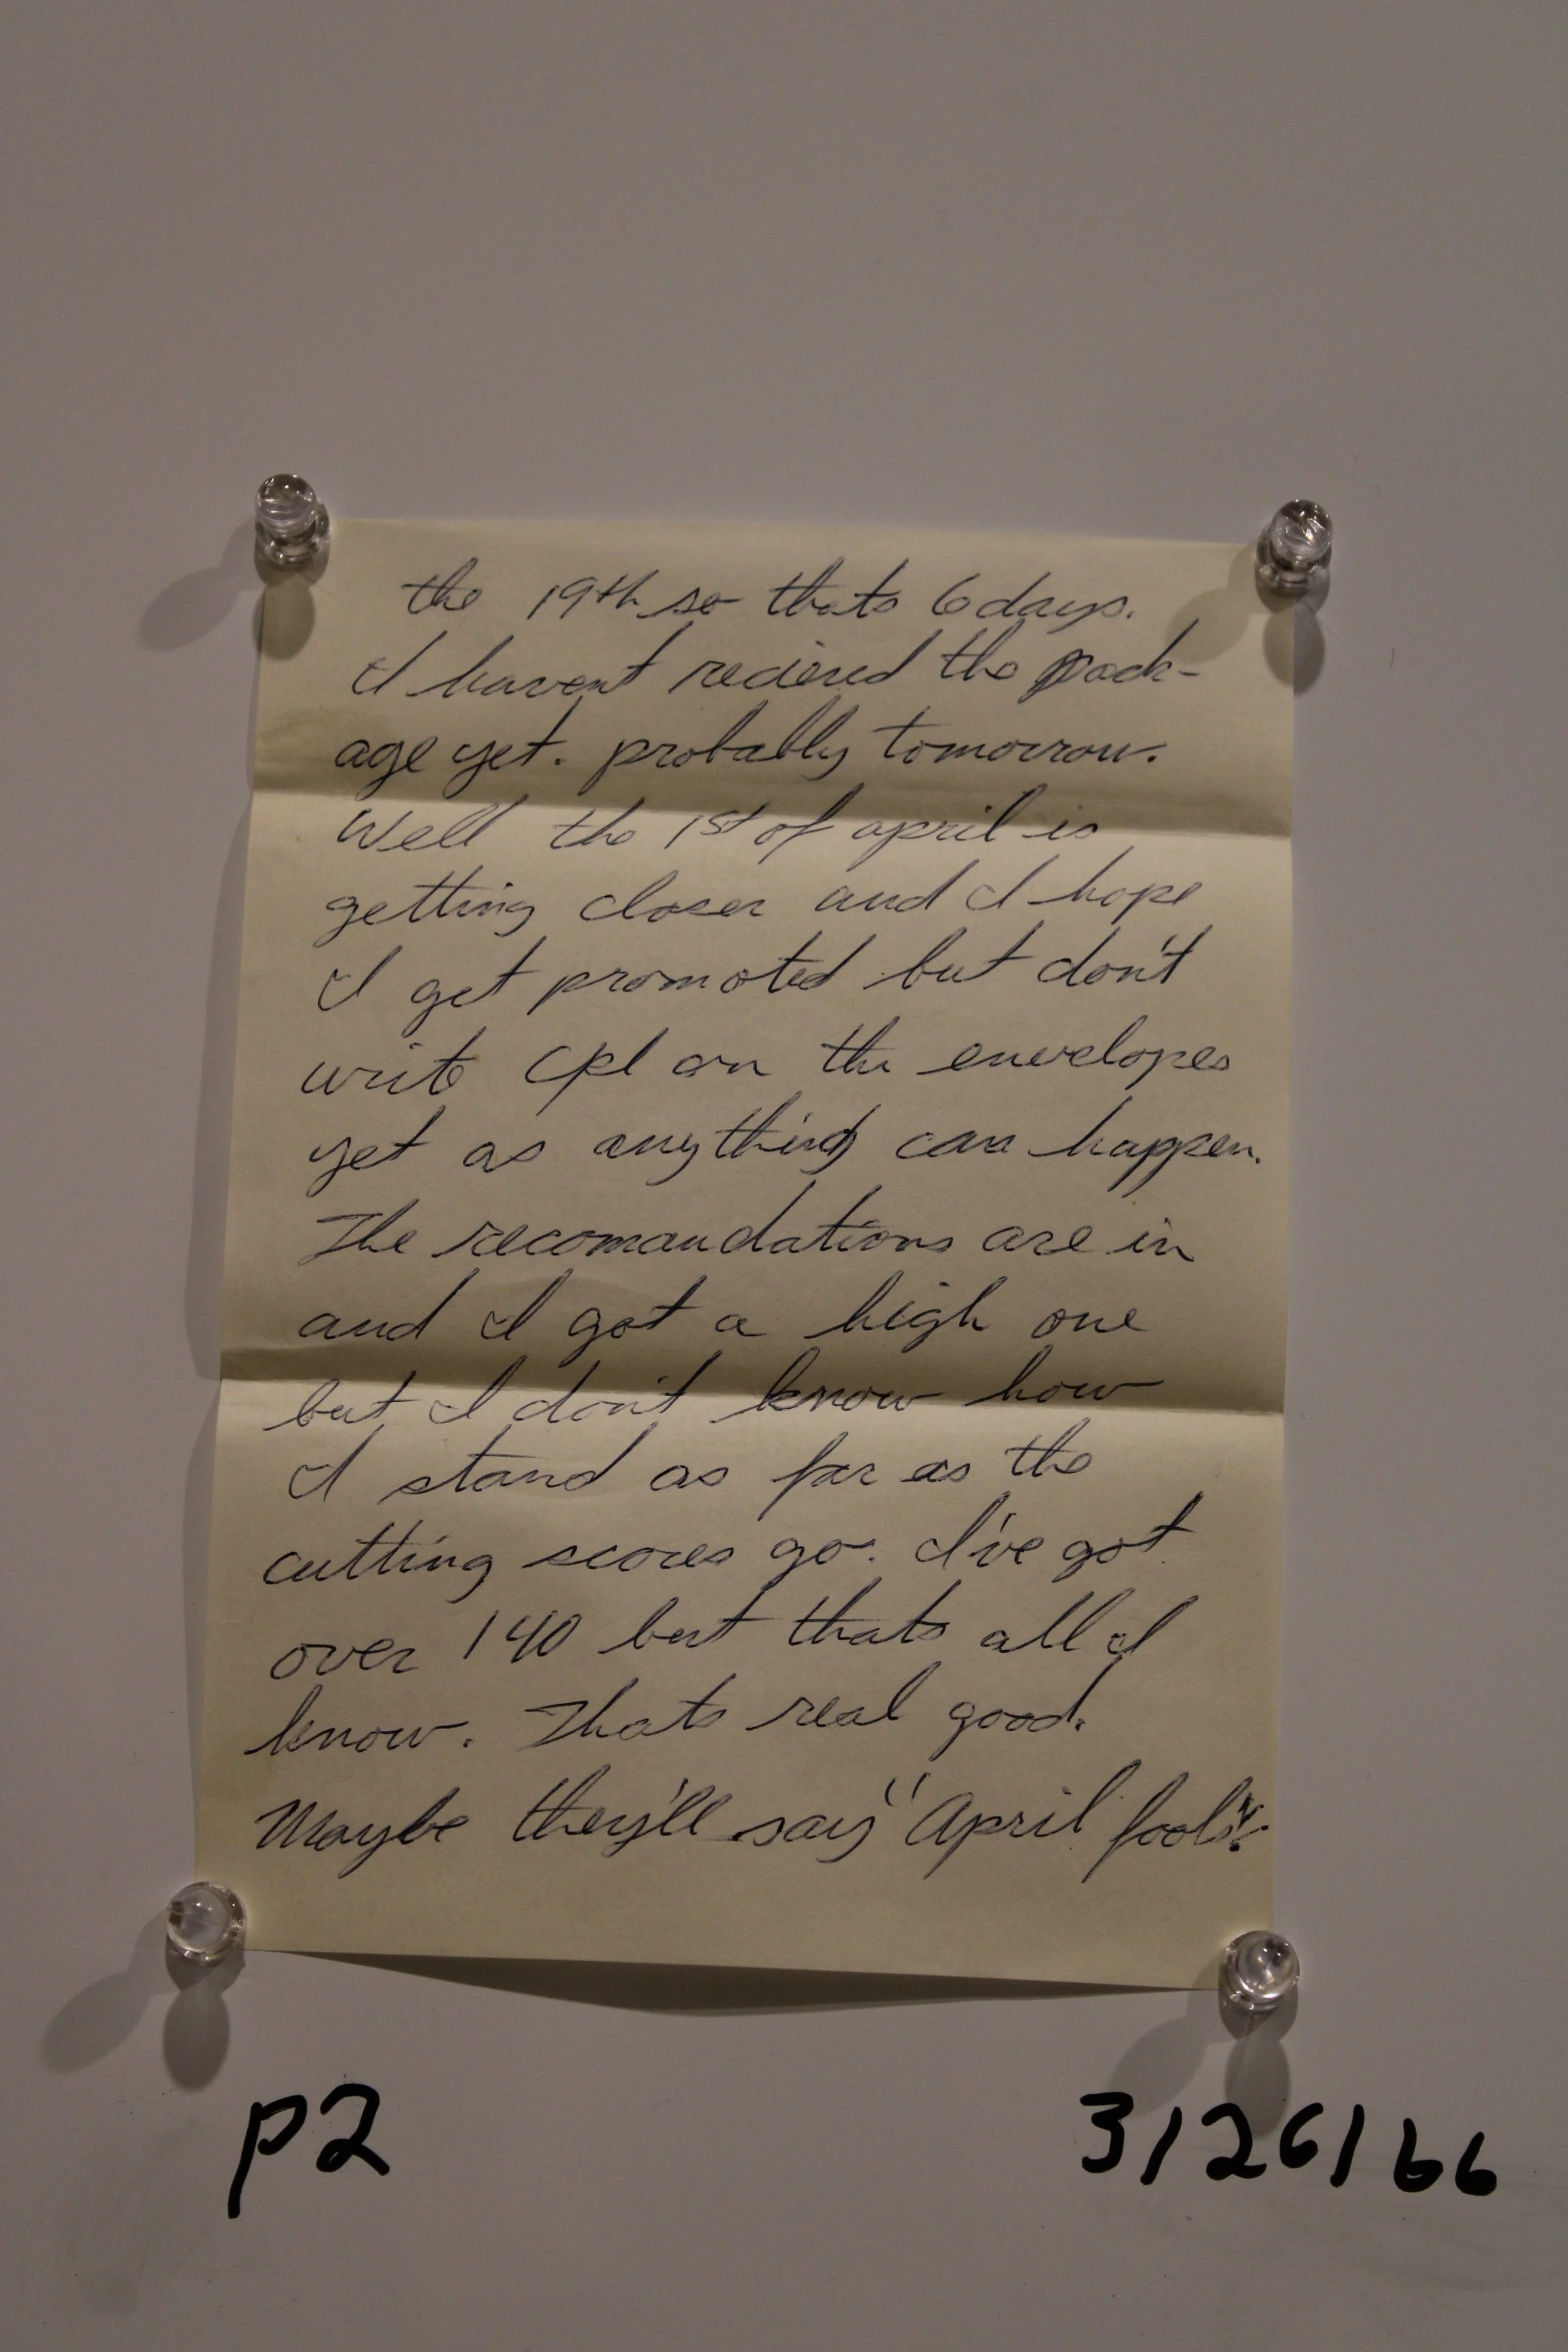 the 19th so thats 6 days.
I havent recieved the pack-
age yet. probably tomorrow.
Well the 1st of april is
getting closer and I hope
I get promoted but don't
write Cpl on the envelopes
yet as anything can happen.
The recomandations are in
and I got a high one
but I don't know how
I stand as far as the
cutting scores go. I've got
over 140 but thats all I
know. Thats real good.
Maybe they'll say "April fools".
p2
3/26/66